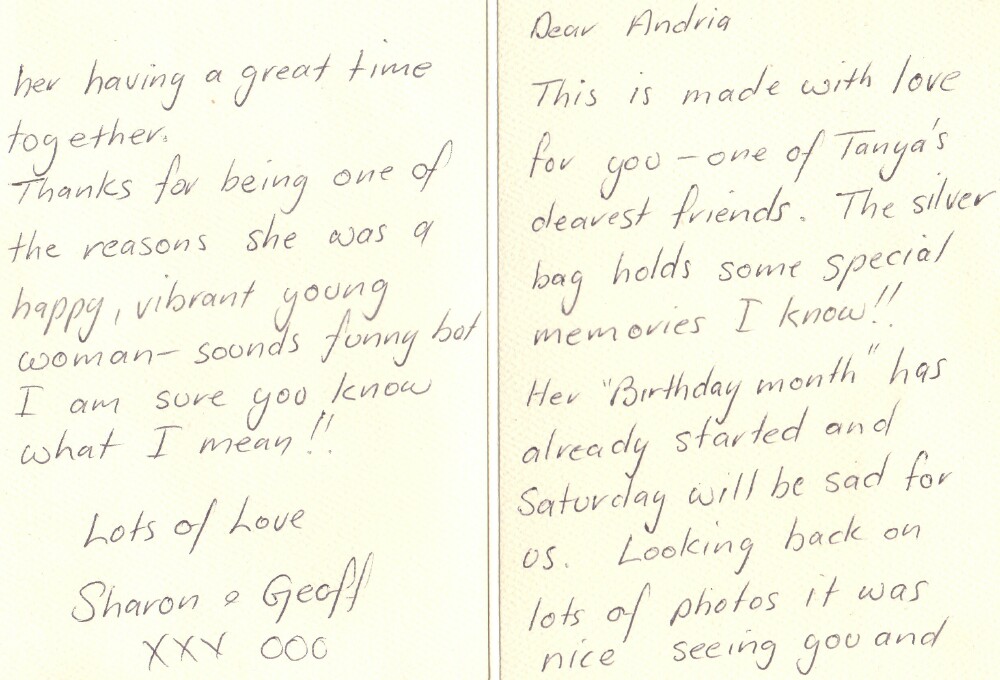 Dear Andria
This is made with love
for you - one of Tanya's
dearest friends. The silver
bag holds some special
memories I know!!
Her "Birthday month" has
already started and
Saturday will be sad for
us. Looking back on
lots of photos it was
nice seeing you and
her having a great time
together.
Thanks for being one of
the reasons she was a
happy, vibrant young
woman - sounds funny but
I am sure you know
what I mean!!
Lots of Love
Sharon & Geoff
XXX OOO